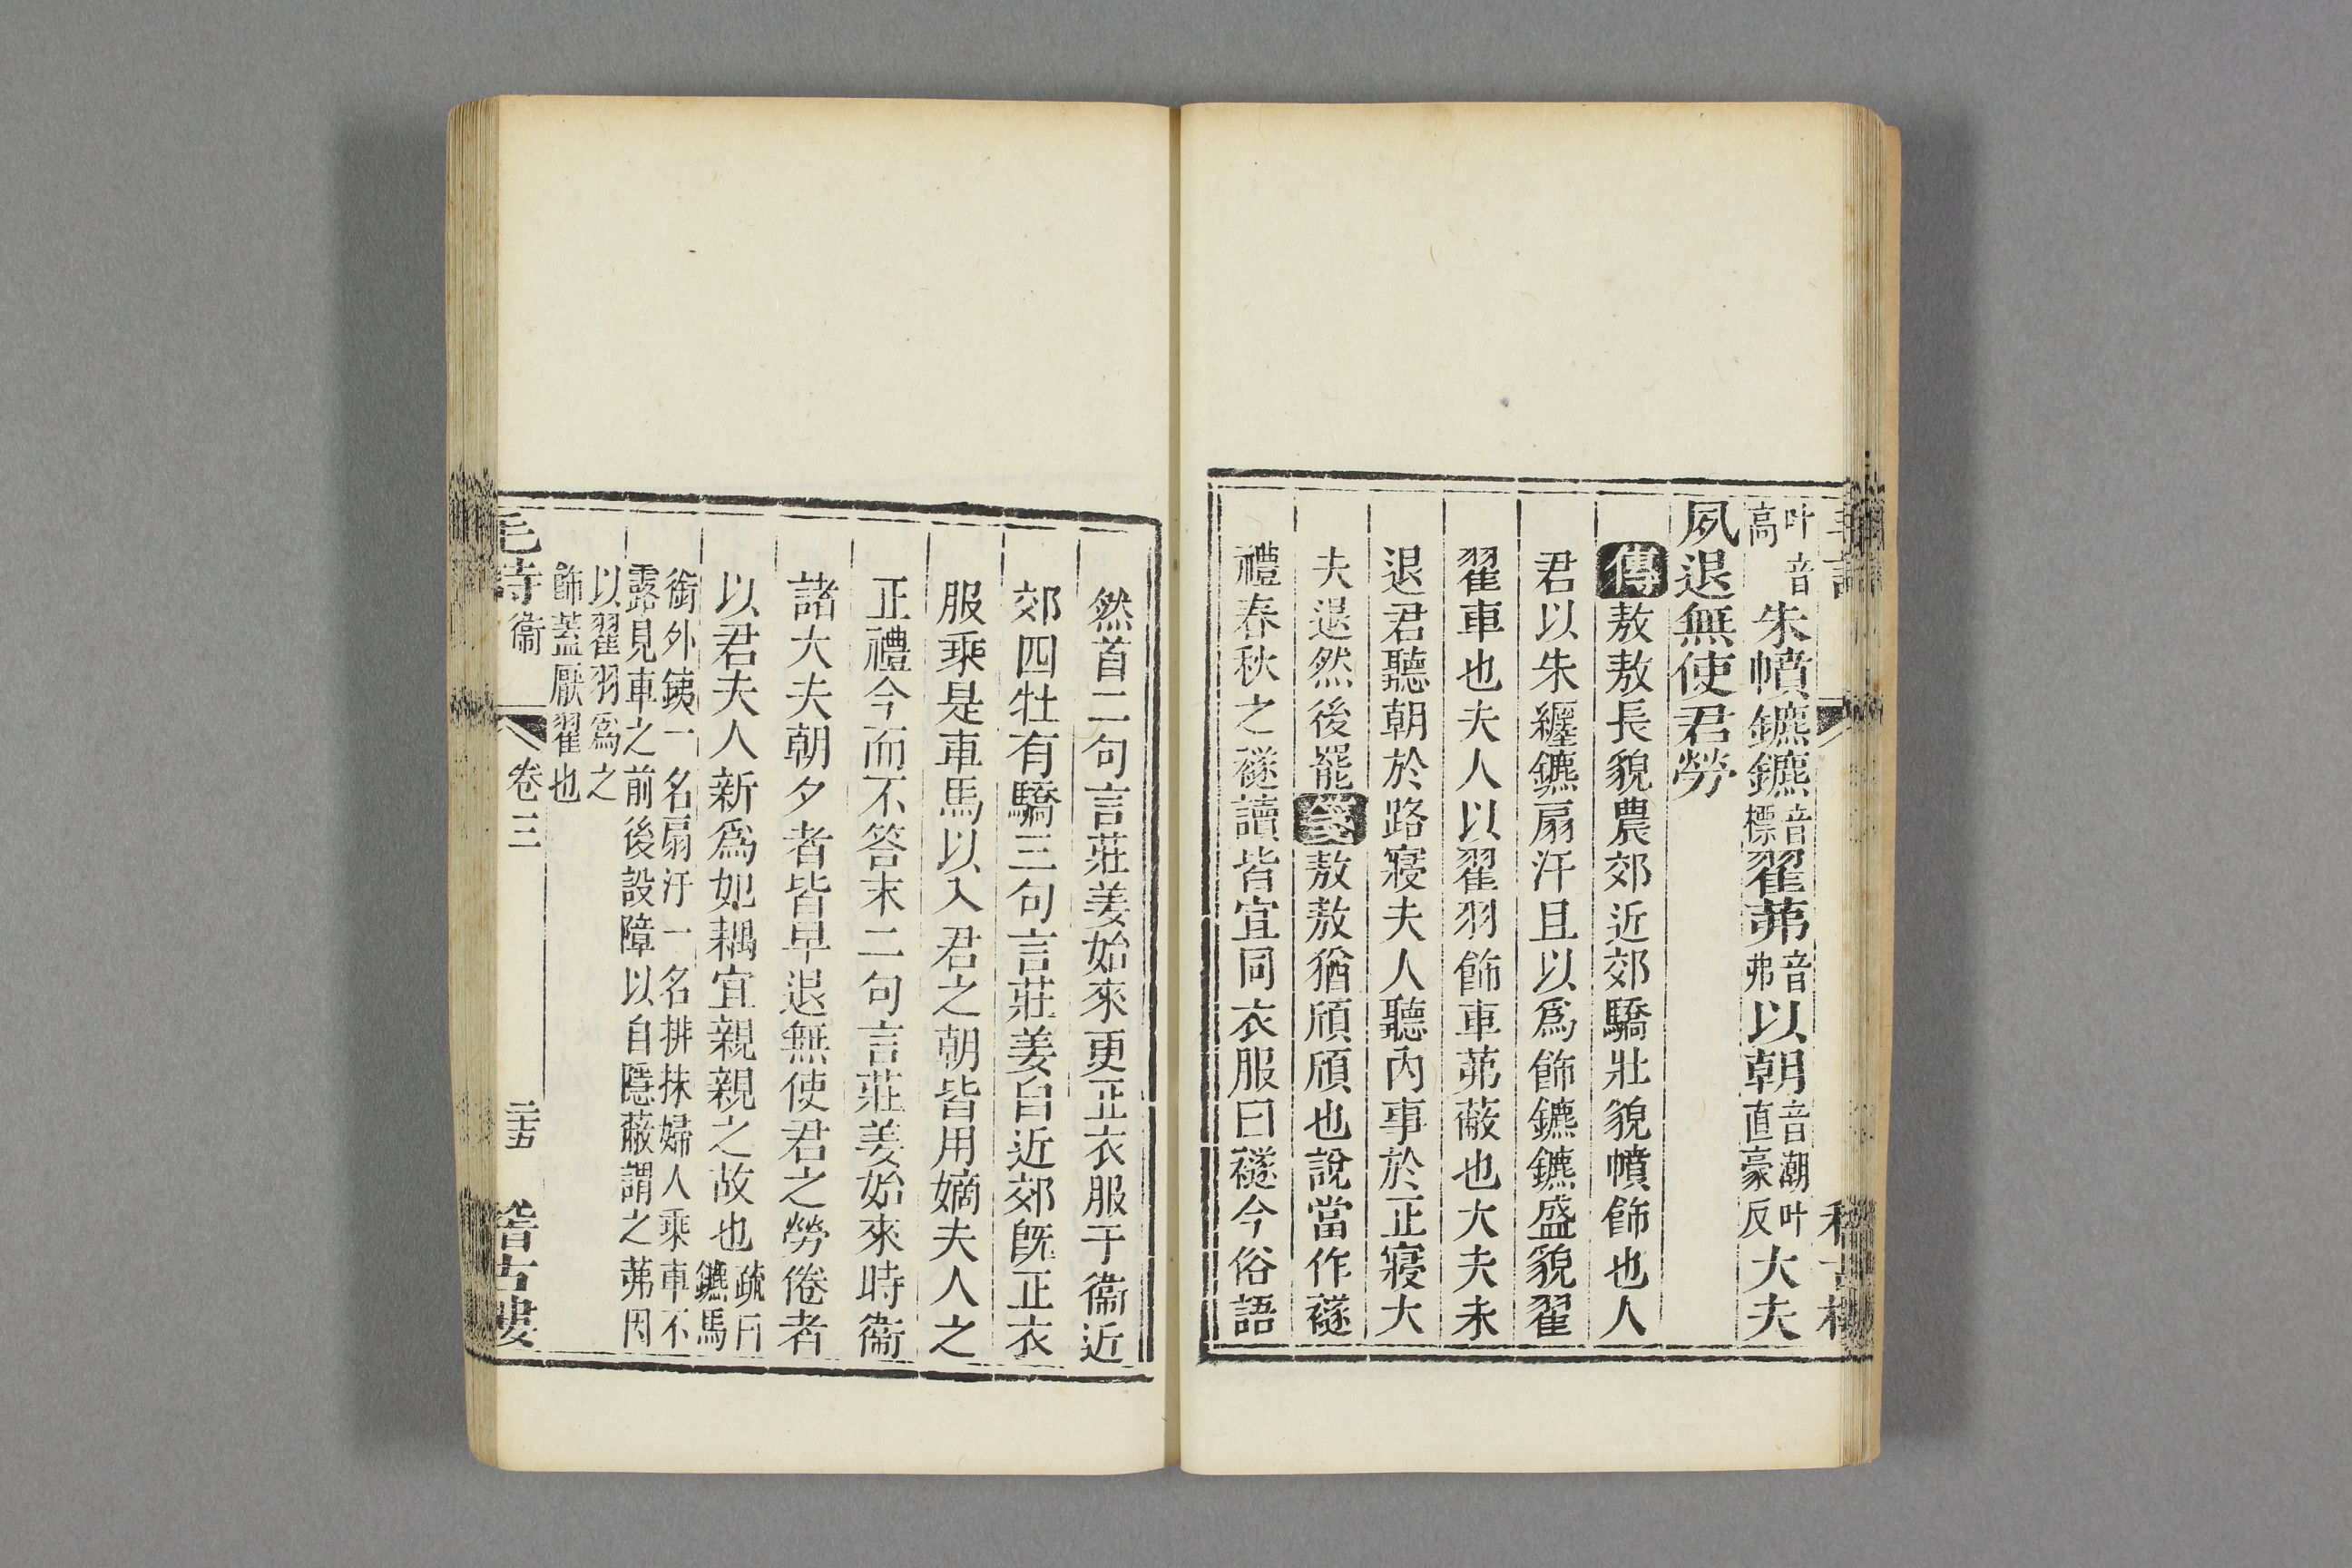 叶音高朱幩鑣鑣音標翟茀音弗以朝音潮叶直豪反大夫
夙退無使君勞
傳敖敖長貌農郊近郊驕壯貌幩飾也人
君以朱纒鑣扇汗且以爲飾鑣鑣盛貌翟
翟車也夫人以翟羽飾車茀蔽也大夫未
退君聽朝於路寢夫人聽內事於正寢大
夫退然後罷箋敖敖猶頎頎也說當作襚
禮春秋之襚讀皆宜同衣服曰襚今俗語
然首二句言莊姜始來更正衣服于衞近
郊四牡有驕三句言莊姜自近郊旣正衣
服乘是車馬以入君之朝皆用嫡夫人之
正禮今而不答末二句言莊姜始來時衞
諸大夫朝夕者皆早退無使君之勞倦者
以君夫人新爲妃耦宜親親之故也疏曰鑣馬
銜外鐵一名扇汗一名排抹婦人乘車不
露見車之前後設障以自隱蔽謂之茀因
以翟羽爲之
飾蓋厭翟也
毛詩 衞 卷三 稽古樓